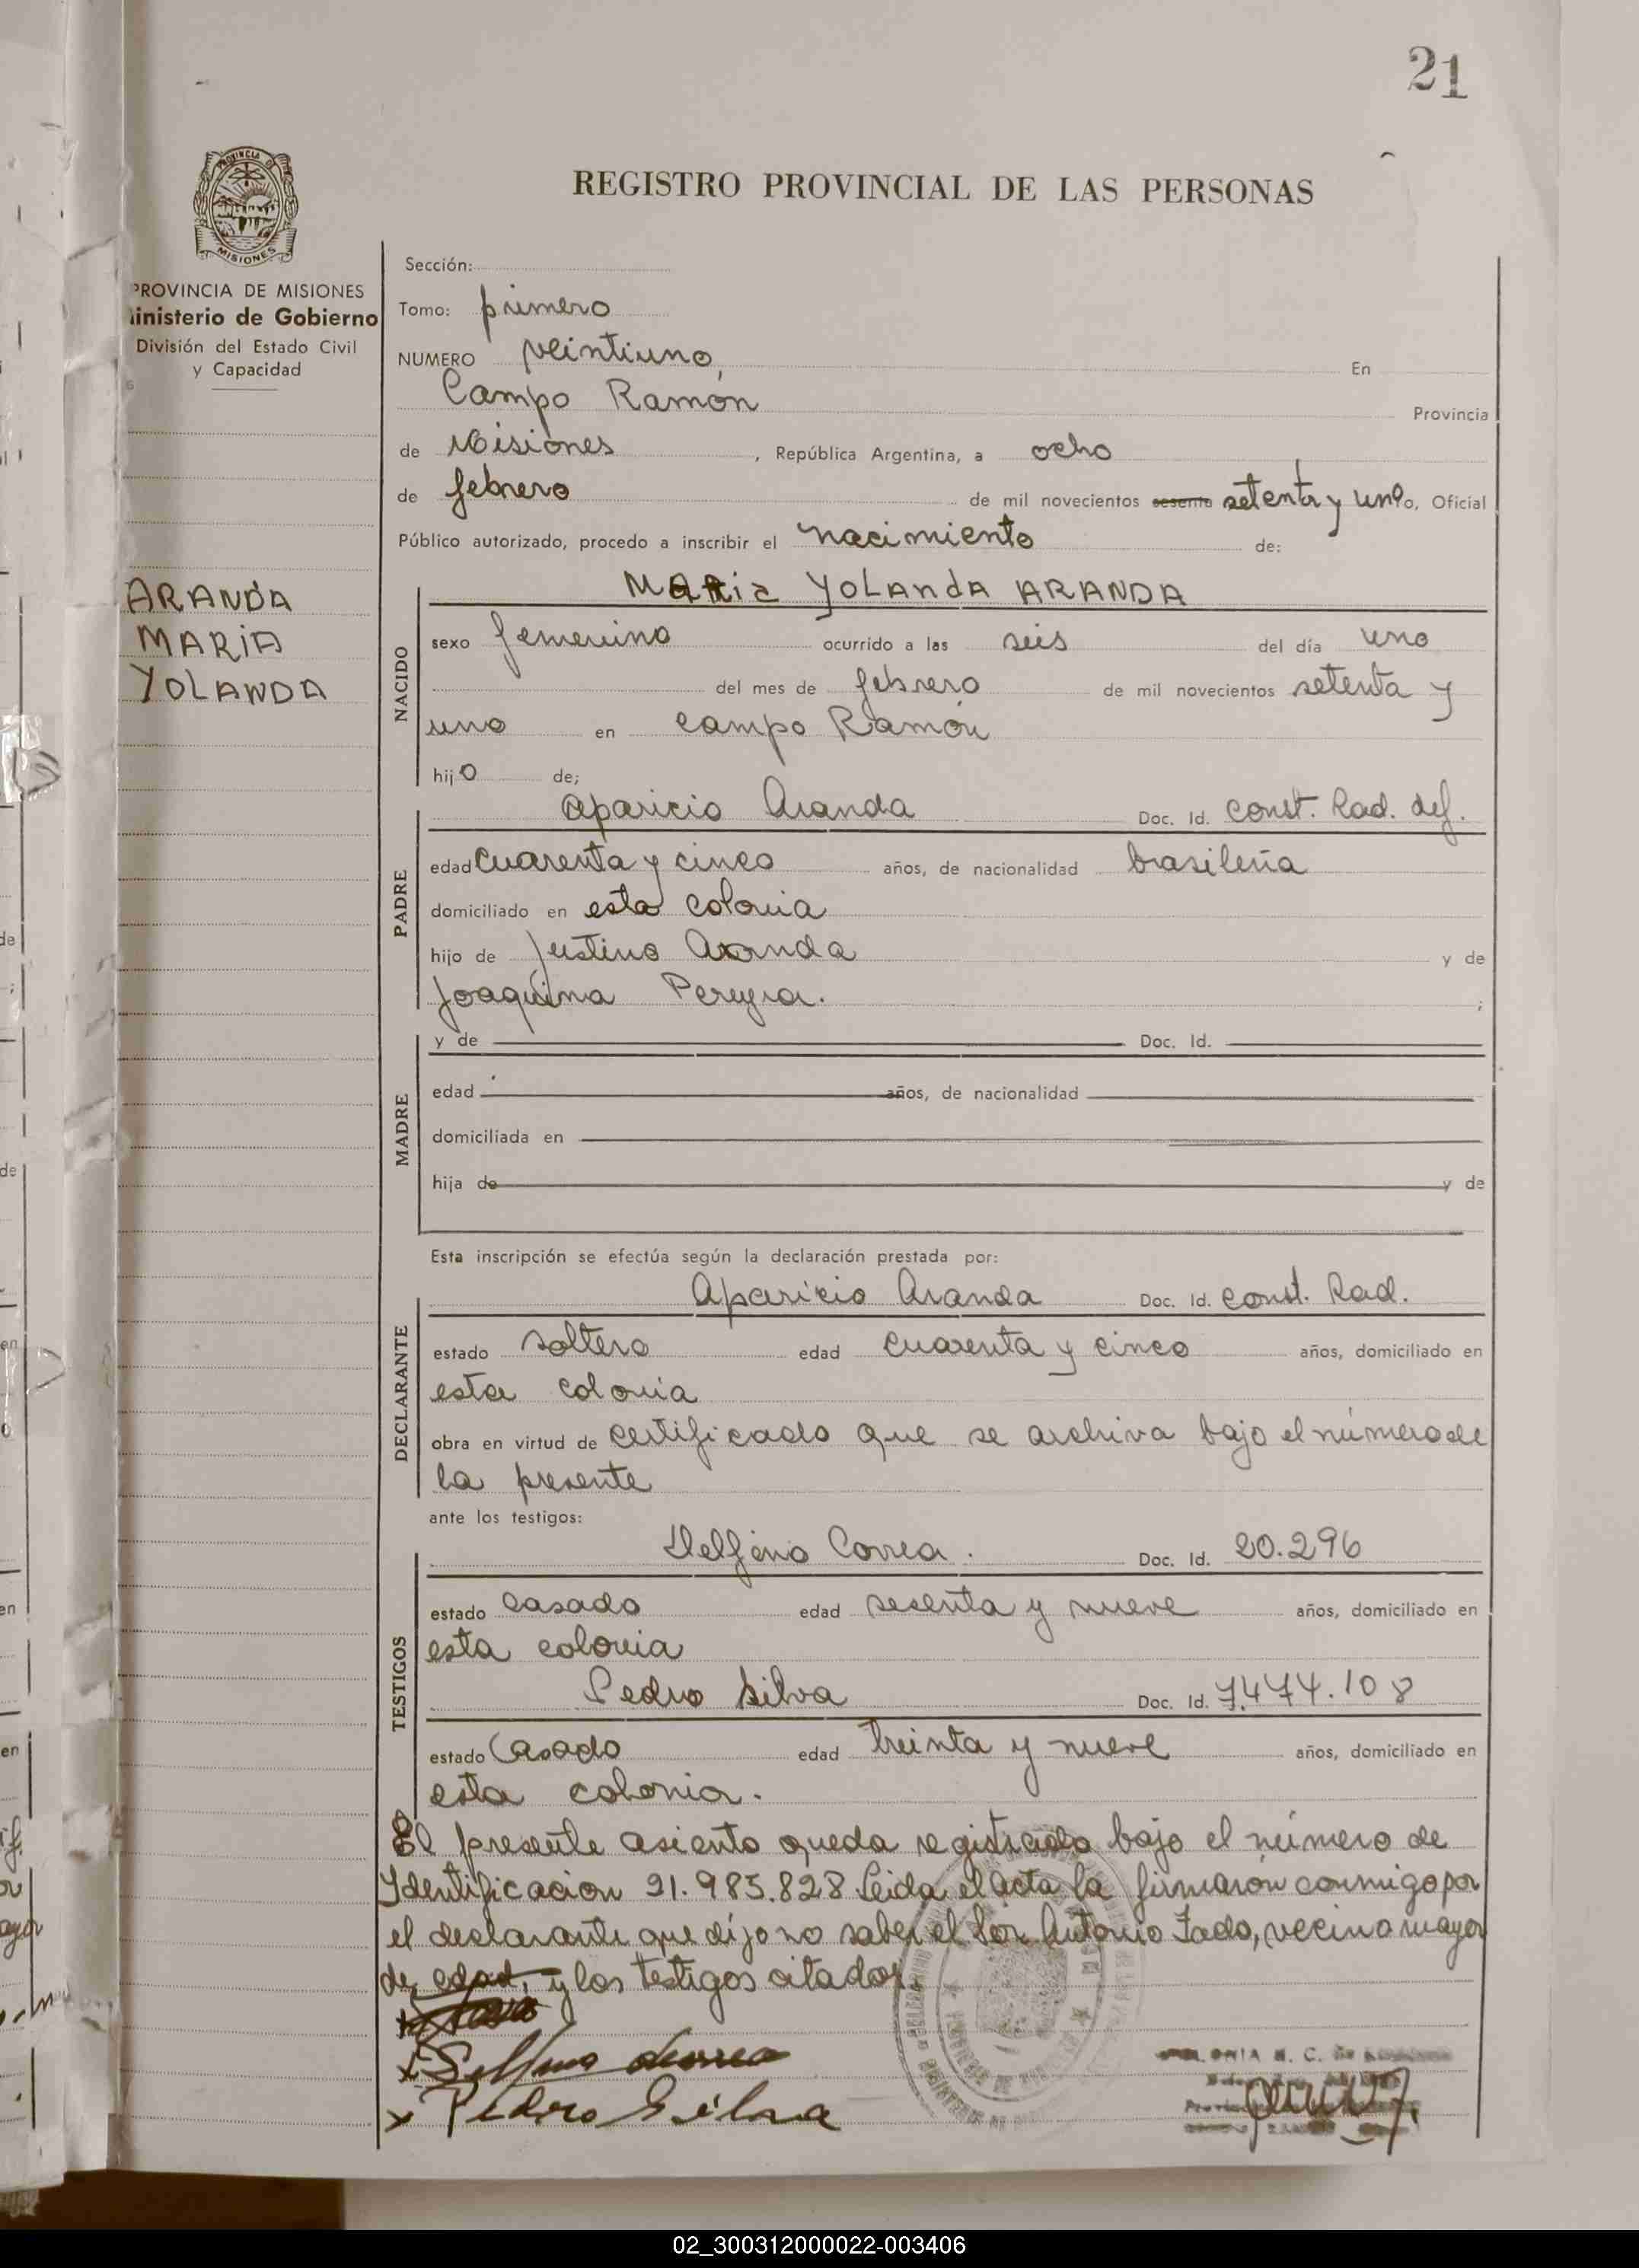 21
REGISTRO PROVINCIAL DE LAS PERSONAS
PROVINCIA DE
MISIONES
PROVINCIA DE MISIONES
Ministerio de Gobierno
División del Estado Civil
y Capacidad
ARANDA
MARIA
YOLANDA
Sección:
Tomo: primero
NUMERO veintiuno, En
Campo Ramón Provincia
de Misiones , República Argentina, a ocho
de febrero de mil novecientos sesenta setenta y uno, Oficial
Público autorizado, procedo a inscribir el nacimiento de:
NACIDO
MARia YOLANdA ARANDA
sexo femenino ocurrido a las seis del día uno
del mes de febrero de mil novecientos setenta y
uno en campo Ramón
hijo de;
PADRE
Aparicio Aranda Doc. Id. const. Rad. def.
edad cuarenta y cinco años, de nacionalidad brasileña
domiciliado en esta colonia
hijo de Justino Aranda y de
Joaquina Pereyra. ;
MADRE
y de Doc. Id.
edad años, de nacionalidad
domiciliada en
hija de y de
Esta inscripción se efectúa según la declaración prestada por:
DECLARANTE
Aparicio Aranda Doc. Id. const. Rad.
estado soltero edad cuarenta y cinco años, domiciliado en
esta colonia
obra en virtud de certificado que se archiva bajo el número de
la presente
ante los testigos:
TESTIGOS
Delfino Correa. Doc. Id. 20.296
estado casado edad sesenta y nueve años, domiciliado en
esta colonia
Pedro Silva Doc. Id. 7.474.108
estado Casado edad treinta y nueve años, domiciliado en
esta colonia.
El presente asiento queda registrado bajo el número de
Identificacion 21.985.828 Leida el acta la firmaron conmigo por
el declarante que dijo no saber el Sor Antonio Fado, vecino mayor
de edad, y los testigos citados.
x Delfino Correa
x Pedro Silva
02_300312000022-003406